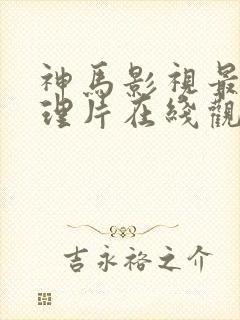 神馬影視最
理片在綫觀
吉永裕之介